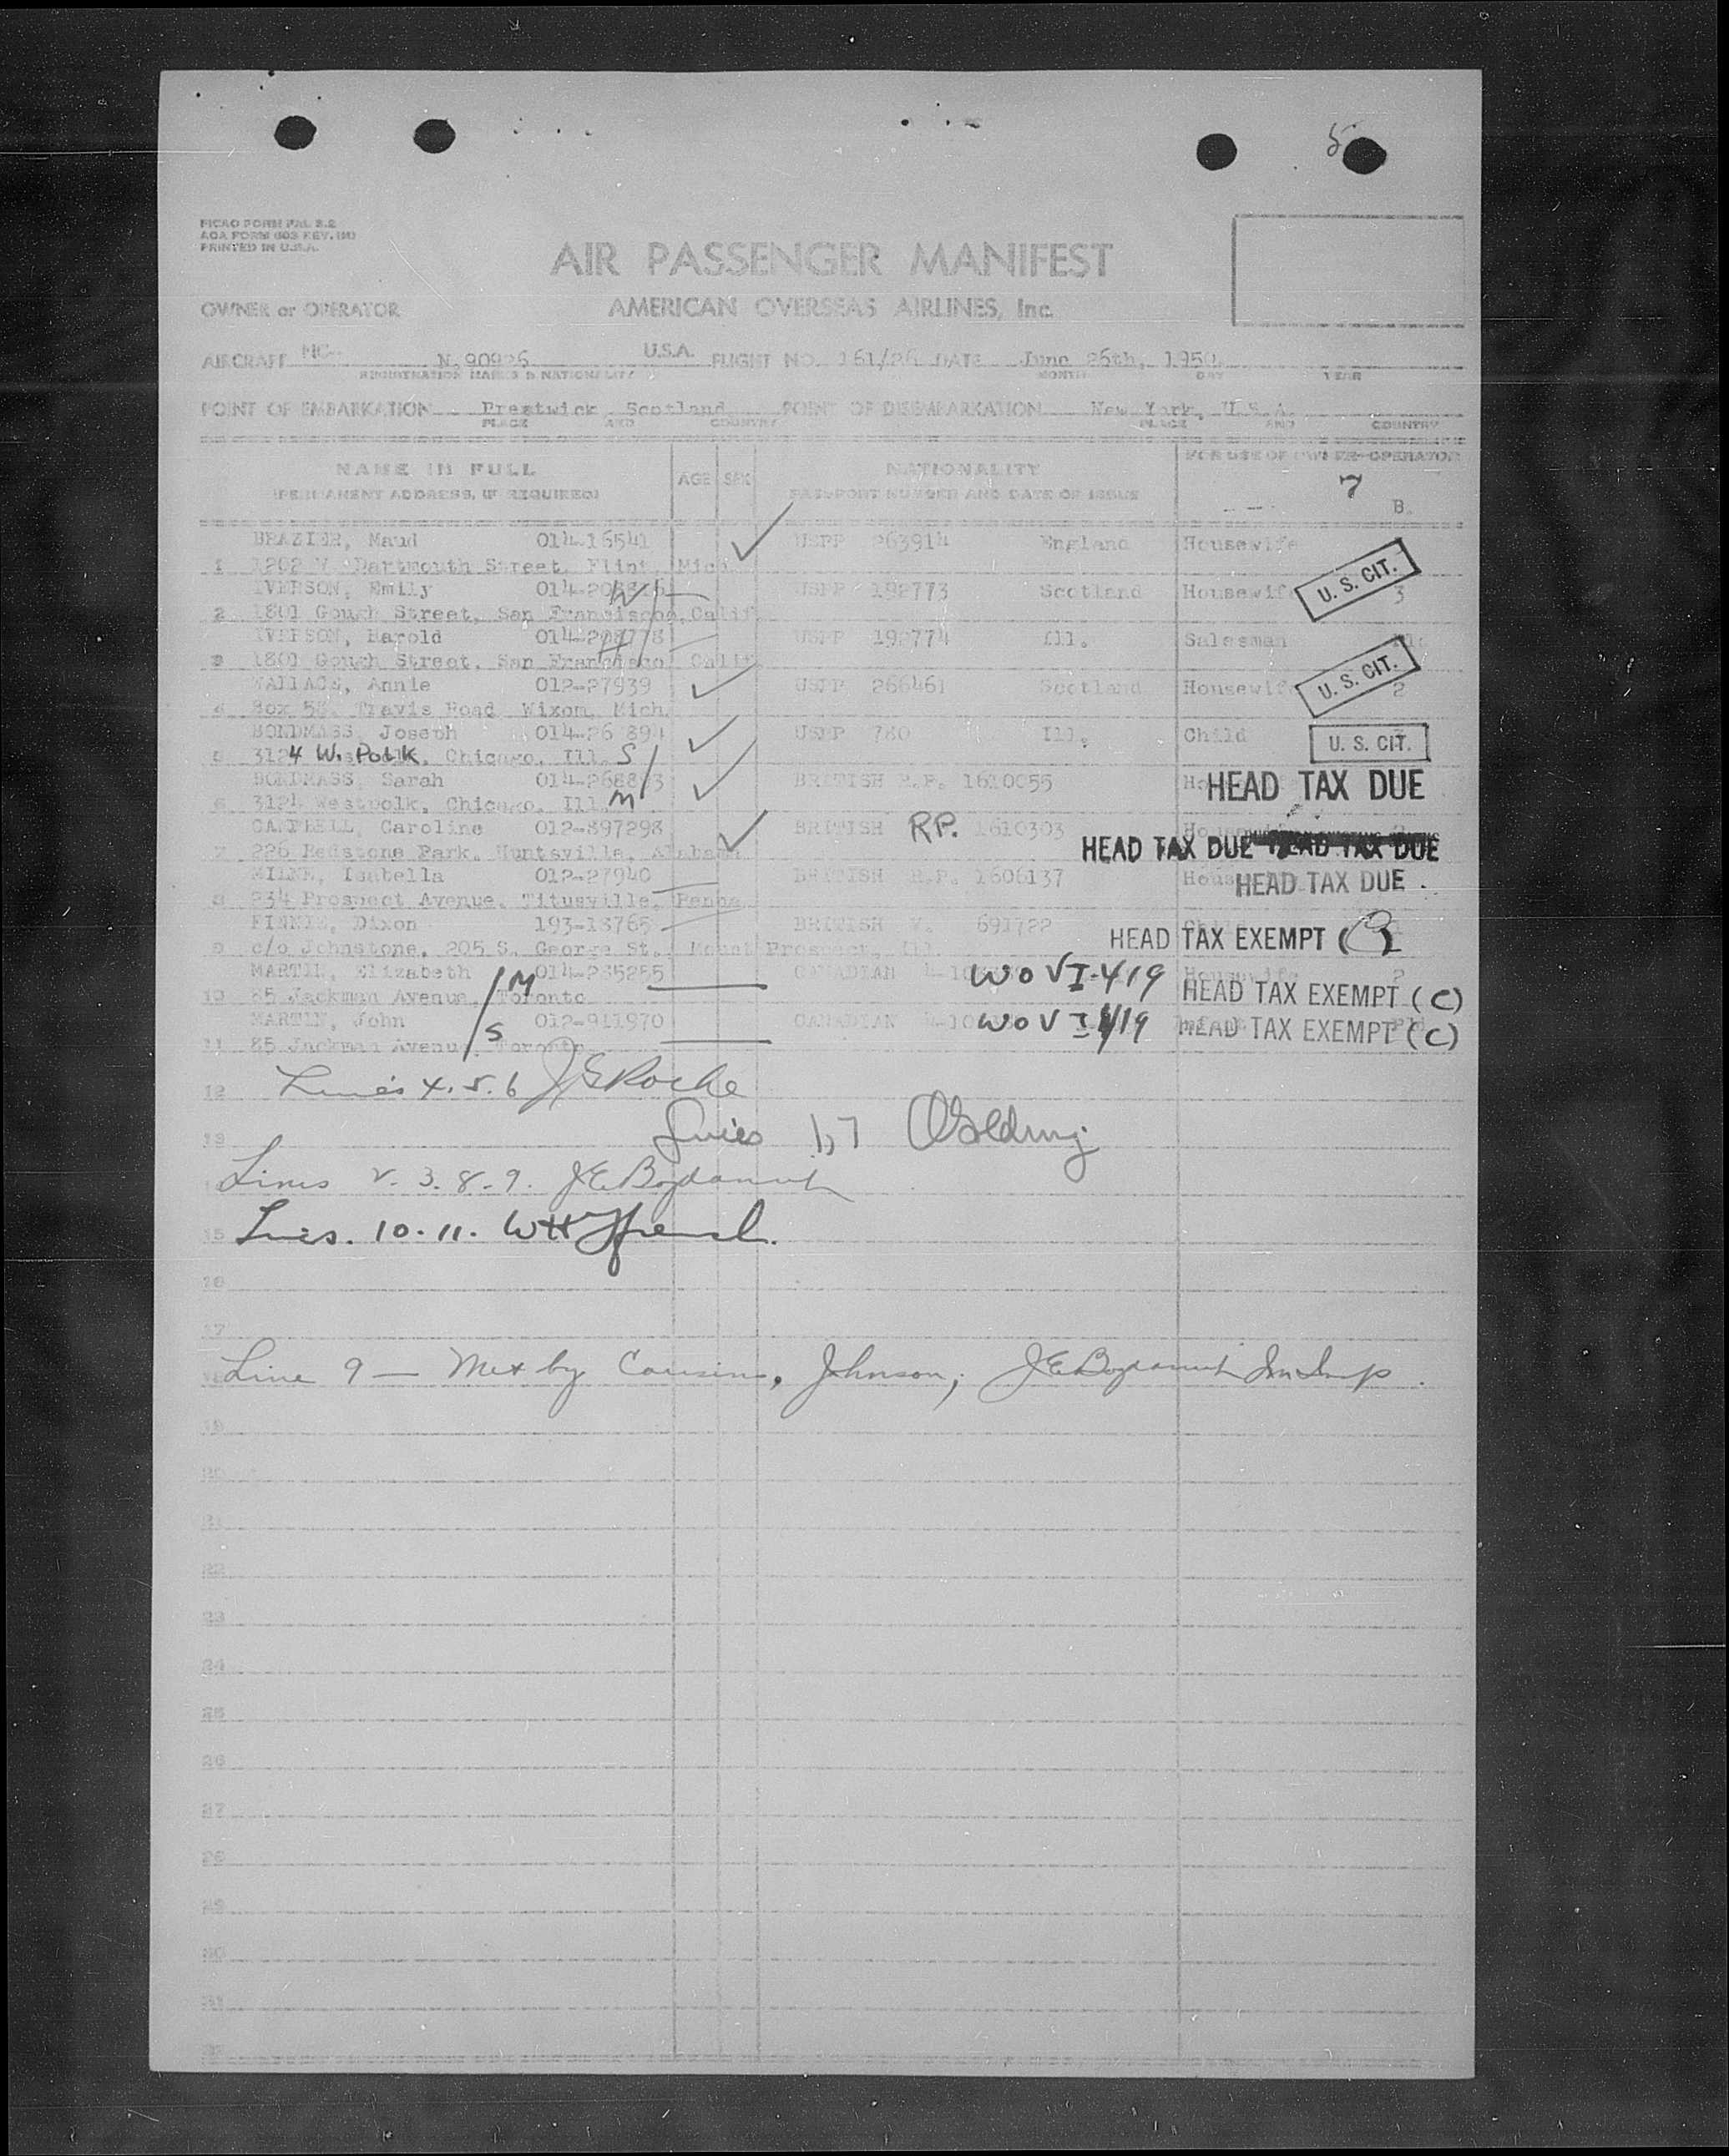 5
PICAO FORM PAL 8.2
PRINTED IN U.S.A.
AIR PASSENGER MANIFEST
OWNER or OPERATOR AMERICAN OVERSEAS AIRLINES, Inc.
AIRCRAFT NC- N-90926 U.S.A. FLIGHT NO. 161/26 DATE June 26th, 1950.
REGISTRATION MARKS & NATIONALITY MONTH DAY YEAR
POINT OF EMBARKATION Prestwick, Scotland. POINT OF DISEMBARKATION New York, U.S.A.
PLACE AND COUNTRY PLACE AND COUNTRY
NAME IN FULL AGE SEX NATIONALITY FOR USE OF OWNER-OPERATOR
(PERMANENT ADDRESS, IF REQUIRED) PASSPORT NUMBER AND DATE OF ISSUE 7
B.
BRAZIER, Maud 014-16541 USPP 263914 England Housewife
1 1202 Dartmouth Street, Flint, Mich. U. S. CIT.
IVERSON, Emily W USPP 192773 Scotland Housewife 3
2 1801 Gough Street, San Francisco, Calif.
IVERSON, Harold H USPP 192774 Ill. Salesman
3 1801 Gough Street, San Francisco, Calif. U. S. CIT.
WALLACE, Annie 012-27939 USPP 266461 Scotland Housewife 2
4 Travis Road Wixom, Mich.
BONDMASS, Joseph USPP 780 Ill. Child U. S. CIT.
5 3124 W. POLK, Chicago, Ill. S
BONDMASS, Sarah BRITISH R.P. 1610055 HEAD TAX DUE
6 3124 Westpolk, Chicago, Ill. M
CAMPBELL, Caroline 012-897298 BRITISH R.P. 1610303
7 226 Redstone Park, Huntsville, Alabama HEAD TAX DUE HEAD TAX DUE
MILNE, Isabella 012-27940 BRITISH R.P. 1606137 HEAD TAX DUE
8 234 Prospect Avenue, Titusville, Penna.
Dixon 193-18765 BRITISH V. 691722 Child
9 c/o Johnstone, 205 S. George St., Mount Prospect, Ill. HEAD TAX EXEMPT
MARTIN, Elizabeth 014-235285 CANADIAN WO VI-419 Housewife 2
10 85 Jackman Avenue, Toronto M HEAD TAX EXEMPT (C)
MARTIN, John 012-911970 CANADIAN WO VI 419 HEAD TAX EXEMPT (C)
11 85 Jackman Avenue, Toronto S
12 Lines 4.5.6 J E Roche
13 Lines 1,7
14 Lines 2. 3. 8. 9.
15 Lines. 10. 11.
16
17
18 Line 9 — Met by Cousins, Johnson;
19
20
21
22
23
24
25
26
27
28
29
30
31